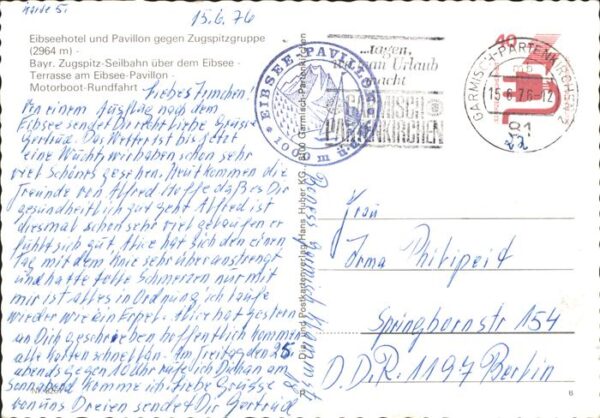 Karte 5.
15.6.76
Eibseehotel und Pavillon gegen Zugspitzgruppe
(2964 m) -
Bayr. Zugspitz-Seilbahn über dem Eibsee -
Terrasse am Eibsee-Pavillon -
Motorboot-Rundfahrt
Liebes Irmchen!
Von einem Ausflug nach dem
Eibsee sendet Dir recht liebe Grüsse
Gertrud. Das Wetter ist bis jetzt
eine Wucht, wir haben schon sehr
viel Schönes gesehen. Heut kommen die
Freunde von Alfred. Hoffe daß es Dir
gesundheitlich gut geht. Alfred ist
diesmal schon sehr viel gelaufen er
fühlt sich gut. Alice hat sich den einen
Tag mit dem Knie sehr überanstrengt
und hatte tolle Schmerzen nur mit
mir ist alles in Ordnung, ich laufe
wieder wie ein Erpel. Alice hat gestern
an Dich geschrieben hoffentlich kommen
alle Karten schnell an. Am Freitag den 25.
abends gegen 10 Uhr rufe ich Dich an am
Sonnabend komme ich. Liebe Grüsse
von uns Dreien sendet Dir Gertrud
EIBSEE-PAVILLON
1000 m
...tagen,
wo man Urlaub
macht
GARMISCH-
PARTENKIRCHEN
40
GARMISCH-PARTENKIRCHEN 2
mb
15.6.76-12
81
Druck und Postkartenverlag Hans Huber KG, 8100 Garmisch-Partenkirchen
Frau
Irma Philipeit
Springbornstr 154
D.D.R. 1197 Berlin
6